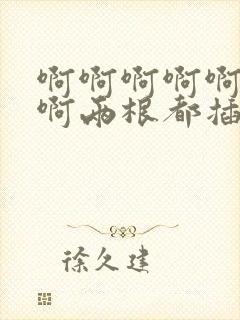 啊啊啊啊啊
啊两根都插
徐久建